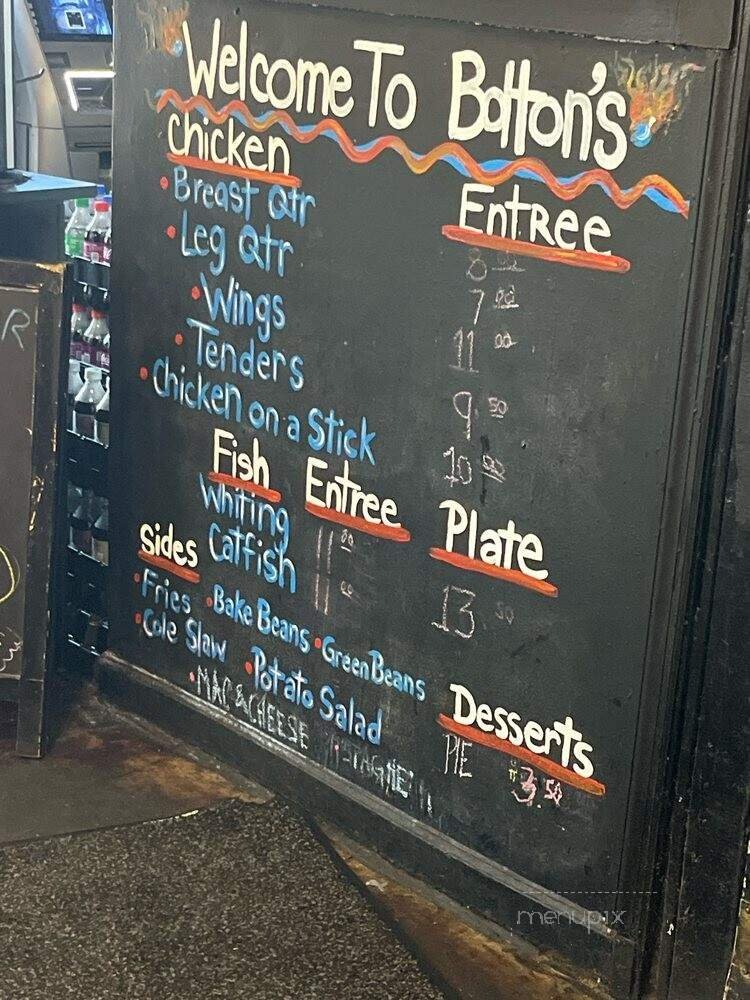 Welcome To Botton's
Chicken
Entree
• Breast Qtr 8 00
• Leg Qtr 7 00
• Wings 11 00
• Tenders 9 50
• Chicken on a Stick 10 00
Fish Entree Plate
Whiting 11 00 13 50
Catfish 11 00
Sides
• Fries • Bake Beans • Green Beans
• Cole Slaw • Potato Salad
• MAC & CHEESE
Desserts
PIE 3.50
R
menupix